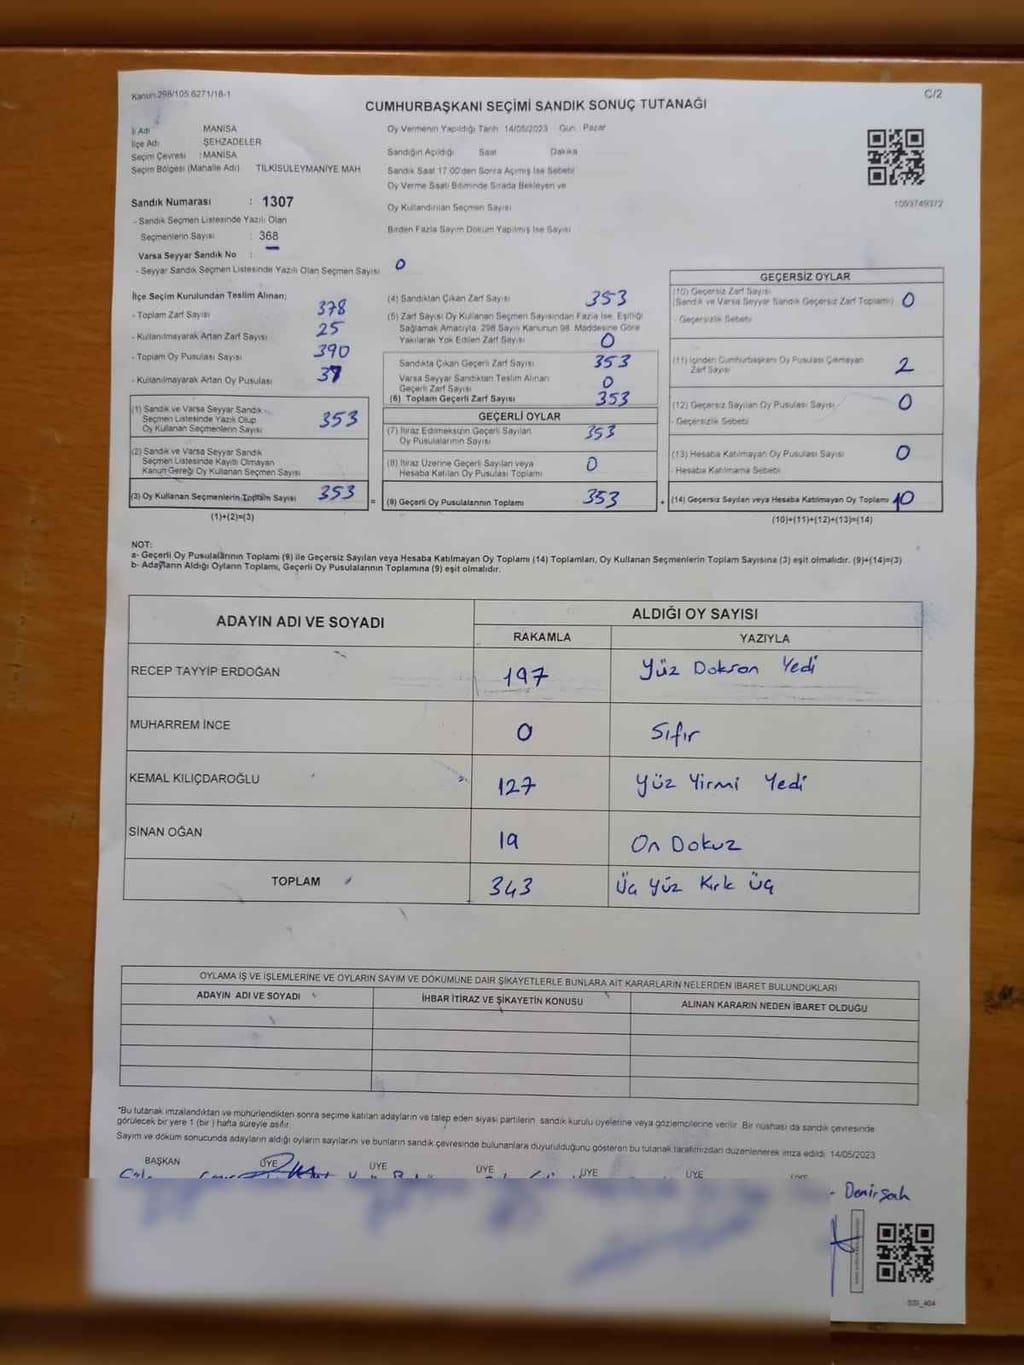 Kanun:298/105 6271/18-1
C/2
CUMHURBAŞKANI SEÇİMİ SANDIK SONUÇ TUTANAĞI
İl Adı MANİSA
İlçe Adı ŞEHZADELER
Seçim Çevresi : MANİSA
Seçim Bölgesi (Mahalle Adı) TİLKİSÜLEYMANİYE MAH
Oy Vermenin Yapıldığı Tarih 14/05/2023 Gün Pazar
Sandığın Açıldığı Saat Dakika
Sandık Saat 17.00'den Sonra Açımış İse Sebebi
Oy Verme Saati Bitiminde Sırada Bekleyen ve
Oy Kullandırılan Seçmen Sayısı
Birden Fazla Sayım Döküm Yapılmış İse Sayısı
1093749372
Sandık Numarası : 1307
- Sandık Seçmen Listesinde Yazılı Olan
Seçmenlerin Sayısı : 368
Varsa Seyyar Sandık No :
- Seyyar Sandık Seçmen Listesinde Yazılı Olan Seçmen Sayısı 0
İlçe Seçim Kurulundan Teslim Alınan;
- Toplam Zarf Sayısı 378
- Kullanılmayarak Artan Zarf Sayısı 25
- Toplam Oy Pusulası Sayısı 390
- Kullanılmayarak Artan Oy Pusulası 37
(1) Sandık ve Varsa Seyyar Sandık
Seçmen Listesinde Yazılı Olup
Oy Kullanan Seçmenlerin Sayısı 353
(2) Sandık ve Varsa Seyyar Sandık
Seçmen Listesinde Kayıtlı Olmayan
Kanun Gereği Oy Kullanan Seçmen Sayısı
(3) Oy Kullanan Seçmenlerin Toplam Sayısı 353 =
(1)+(2)=(3)
(4) Sandıktan Çıkan Zarf Sayısı 353
(5) Zarf Sayısı Oy Kullanan Seçmen Sayısından Fazla İse, Eşitliği
Sağlamak Amacıyla, 298 Sayılı Kanunun 98. Maddesine Göre
Yakılarak Yok Edilen Zarf Sayısı 0
Sandıkta Çıkan Geçerli Zarf Sayısı 353
Varsa Seyyar Sandıktan Teslim Alınan
Geçerli Zarf Sayısı 0
(6) Toplam Geçerli Zarf Sayısı 353
GEÇERLİ OYLAR
(7) İtiraz Edilmeksizin Geçerli Sayılan
Oy Pusulalarının Sayısı 353
(8) İtiraz Üzerine Geçerli Sayılan veya
Hesaba Katılan Oy Pusulası Toplamı 0
(9) Geçerli Oy Pusulalarının Toplamı 353 +
GEÇERSİZ OYLAR
(10) Geçersiz Zarf Sayısı
(Sandık ve Varsa Seyyar Sandık Geçersiz Zarf Toplamı) 0
- Geçersizlik Sebebi
(11) İçinden Cumhurbaşkanı Oy Pusulası Çıkmayan
Zarf Sayısı 2
(12) Geçersiz Sayılan Oy Pusulası Sayısı 0
- Geçersizlik Sebebi
(13) Hesaba Katılmayan Oy Pusulası Sayısı 0
- Hesaba Katılmama Sebebi
(14) Geçersiz Sayılan veya Hesaba Katılmayan Oy Toplamı 10
(10)+(11)+(12)+(13)=(14)
NOT:
a- Geçerli Oy Pusulalarının Toplamı (9) ile Geçersiz Sayılan veya Hesaba Katılmayan Oy Toplamı (14) Toplamları, Oy Kullanan Seçmenlerin Toplam Sayısına (3) eşit olmalıdır. (9)+(14)=(3)
b- Adayların Aldığı Oyların Toplamı, Geçerli Oy Pusulalarının Toplamına (9) eşit olmalıdır.
ADAYIN ADI VE SOYADI ALDIĞI OY SAYISI
RAKAMLA YAZIYLA
RECEP TAYYİP ERDOĞAN 197 Yüz Doksan Yedi
MUHARREM İNCE 0 Sıfır
KEMAL KILIÇDAROĞLU 127 Yüz Yirmi Yedi
SİNAN OĞAN 19 On Dokuz
TOPLAM 343 Üç Yüz Kırk Üç
OYLAMA İŞ VE İŞLEMLERİNE VE OYLARIN SAYIM VE DÖKÜMÜNE DAİR ŞİKAYETLERLE BUNLARA AİT KARARLARIN NELERDEN İBARET BULUNDUKLARI
ADAYIN ADI VE SOYADI İHBAR İTİRAZ VE ŞİKAYETİN KONUSU ALINAN KARARIN NEDEN İBARET OLDUĞU
*Bu tutanak imzalandıktan ve mühürlendikten sonra seçime katılan adayların ve talep eden siyasi partilerin sandık kurulu üyelerine veya gözlemcilerine verilir. Bir nüshası da sandık çevresinde
görülecek bir yere 1 (bir) hafta süreyle asılır.
Sayım ve döküm sonucunda adayların aldığı oyların sayılarını ve bunların sandık çevresinde bulunanlara duyurulduğunu gösteren bu tutanak tarafımızdan düzenlenerek imza edildi. 14/05/2023
BAŞKAN ÜYE ÜYE ÜYE ÜYE ÜYE
Demirşah